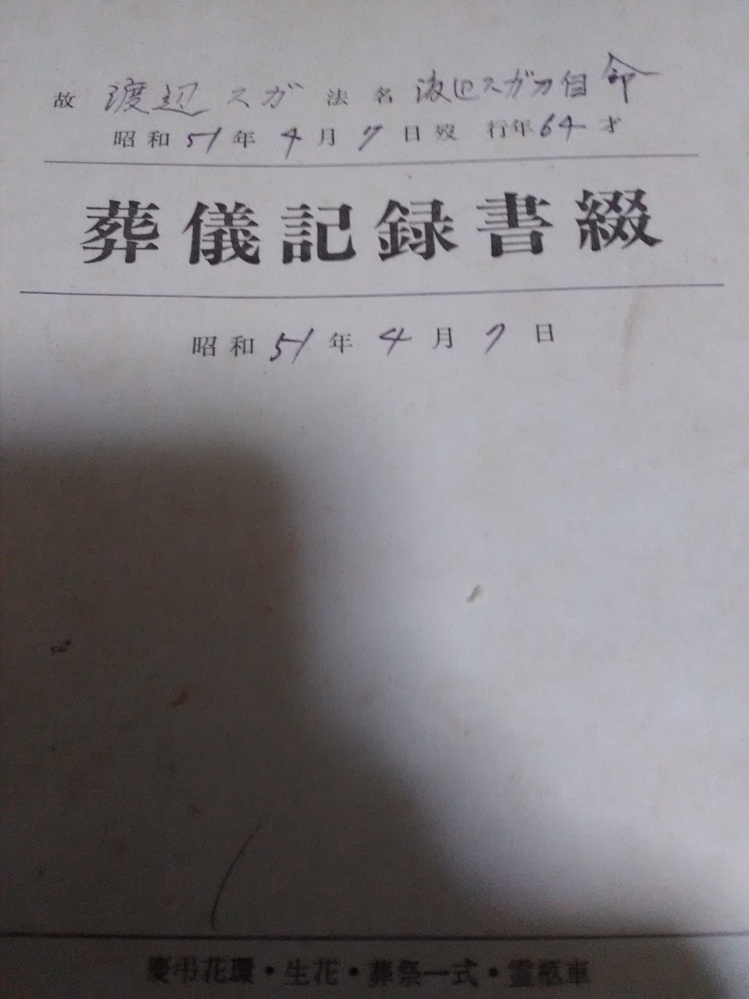 故 渡辺 スガ 法名 渡辺スガ刀自命
昭和51年4月7日歿 行年64才
葬儀記録書綴
昭和51年4月7日
慶弔花環・生花・葬祭一式・霊柩車